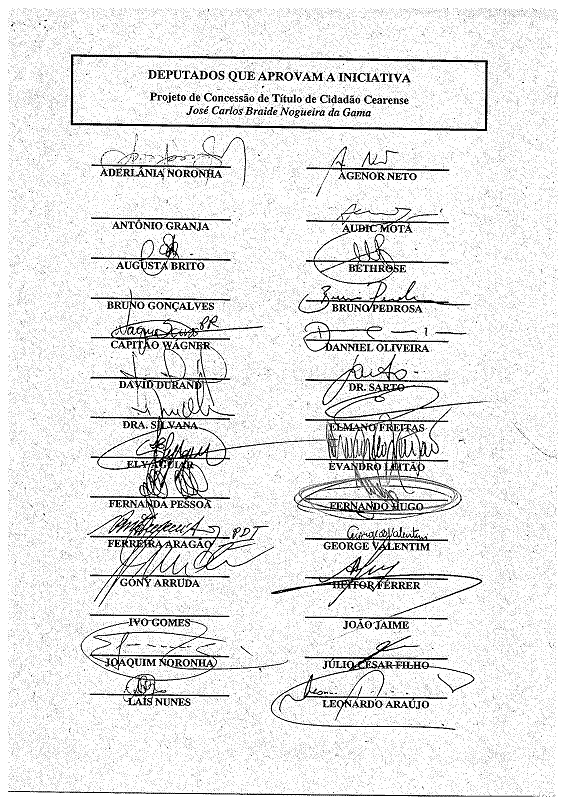 DEPUTADOS QUE APROVAM A INICIATIVA
Projeto de Concessão de Título de Cidadão Cearense
José Carlos Braide Nogueira da Gama
ADERLÂNIA NORONHA
AGENOR NETO
ANTÔNIO GRANJA
AUDIC MOTA
AUGUSTA BRITO
BETHROSE
BRUNO GONÇALVES
Bruno Pedrosa
BRUNO PEDROSA
PR
CAPITÃO WAGNER
DANNIEL OLIVEIRA
DAVID DURAND
Sarto
DR. SARTO
DRA. SILVANA
ELMANO FREITAS
ELY AGUIAR
EVANDRO LEITÃO
FERNANDA PESSOA
FERNANDO HUGO
PDT
FERREIRA ARAGÃO
George Valentim
GEORGE VALENTIM
GONY ARRUDA
HEITOR FÉRRER
IVO GOMES
JOÃO JAIME
JOAQUIM NORONHA
JÚLIO CÉSAR FILHO
LAÍS NUNES
LEONARDO ARAÚJO